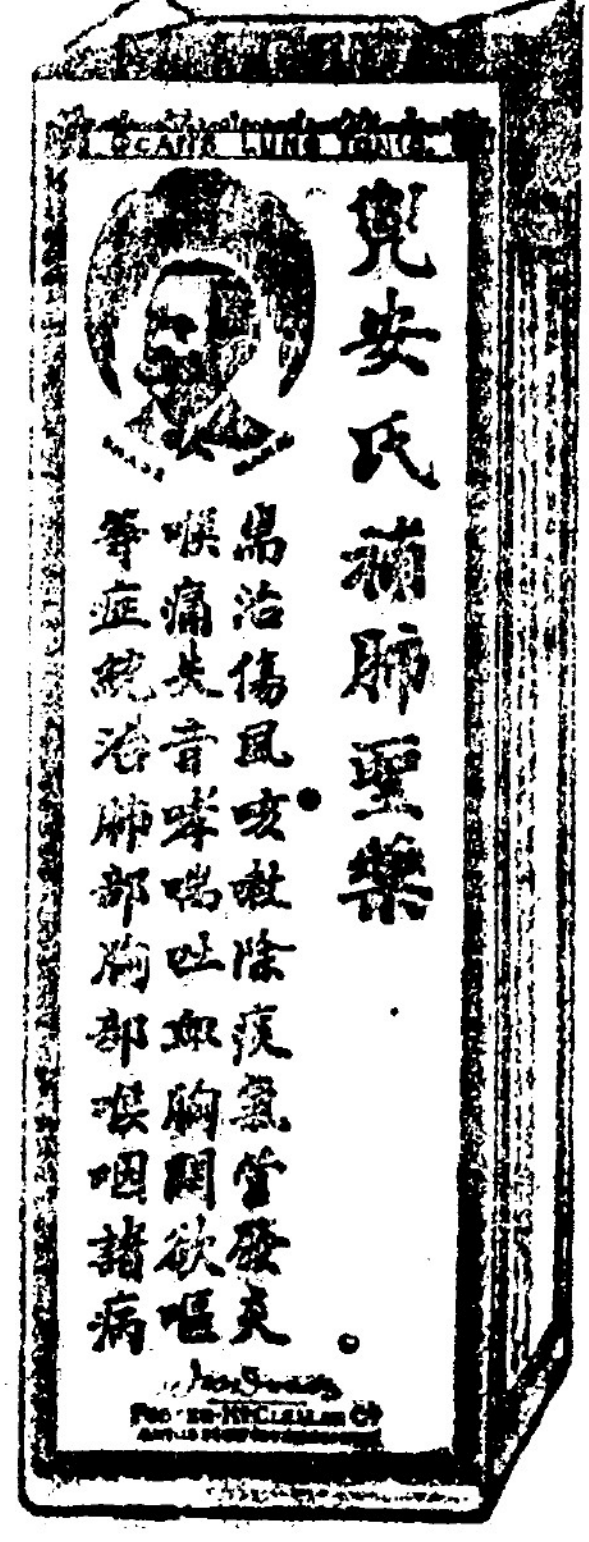 LUNG TONIC
兜安氏補肺聖藥
耑治傷風咳嗽除痰氣管發炎
喉痛失音哮喘吐血胸悶欲嘔
等症統治肺部胸部喉咽諸病
FOSTER-McCLELLAN Co